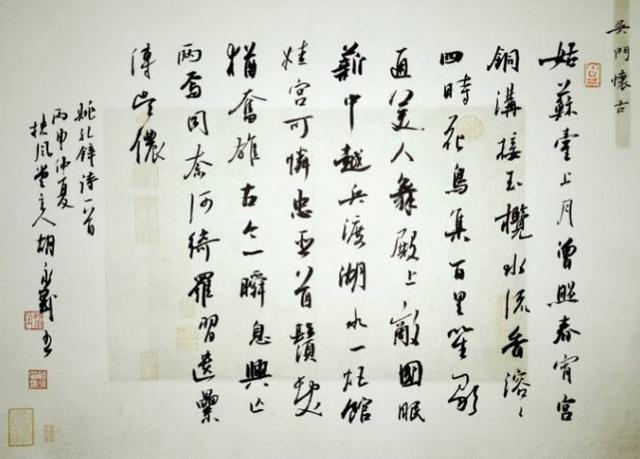 吳門懷古
姑蘇臺上月曾照春宵宮
銅溝接玉檻水流香溶〻
四時花鳥集百里笙歌
通美人舞殿上敵國眠
薪中越兵渡湖水一炬館
娃宮可憐忠臣首鬚髮
猶奮雄古今一瞬息興亡
兩焉同奈何綺羅習遺累
傳吳儂
姚孔鋅詩一首
丙申仲夏
扶風堂主人胡永義書